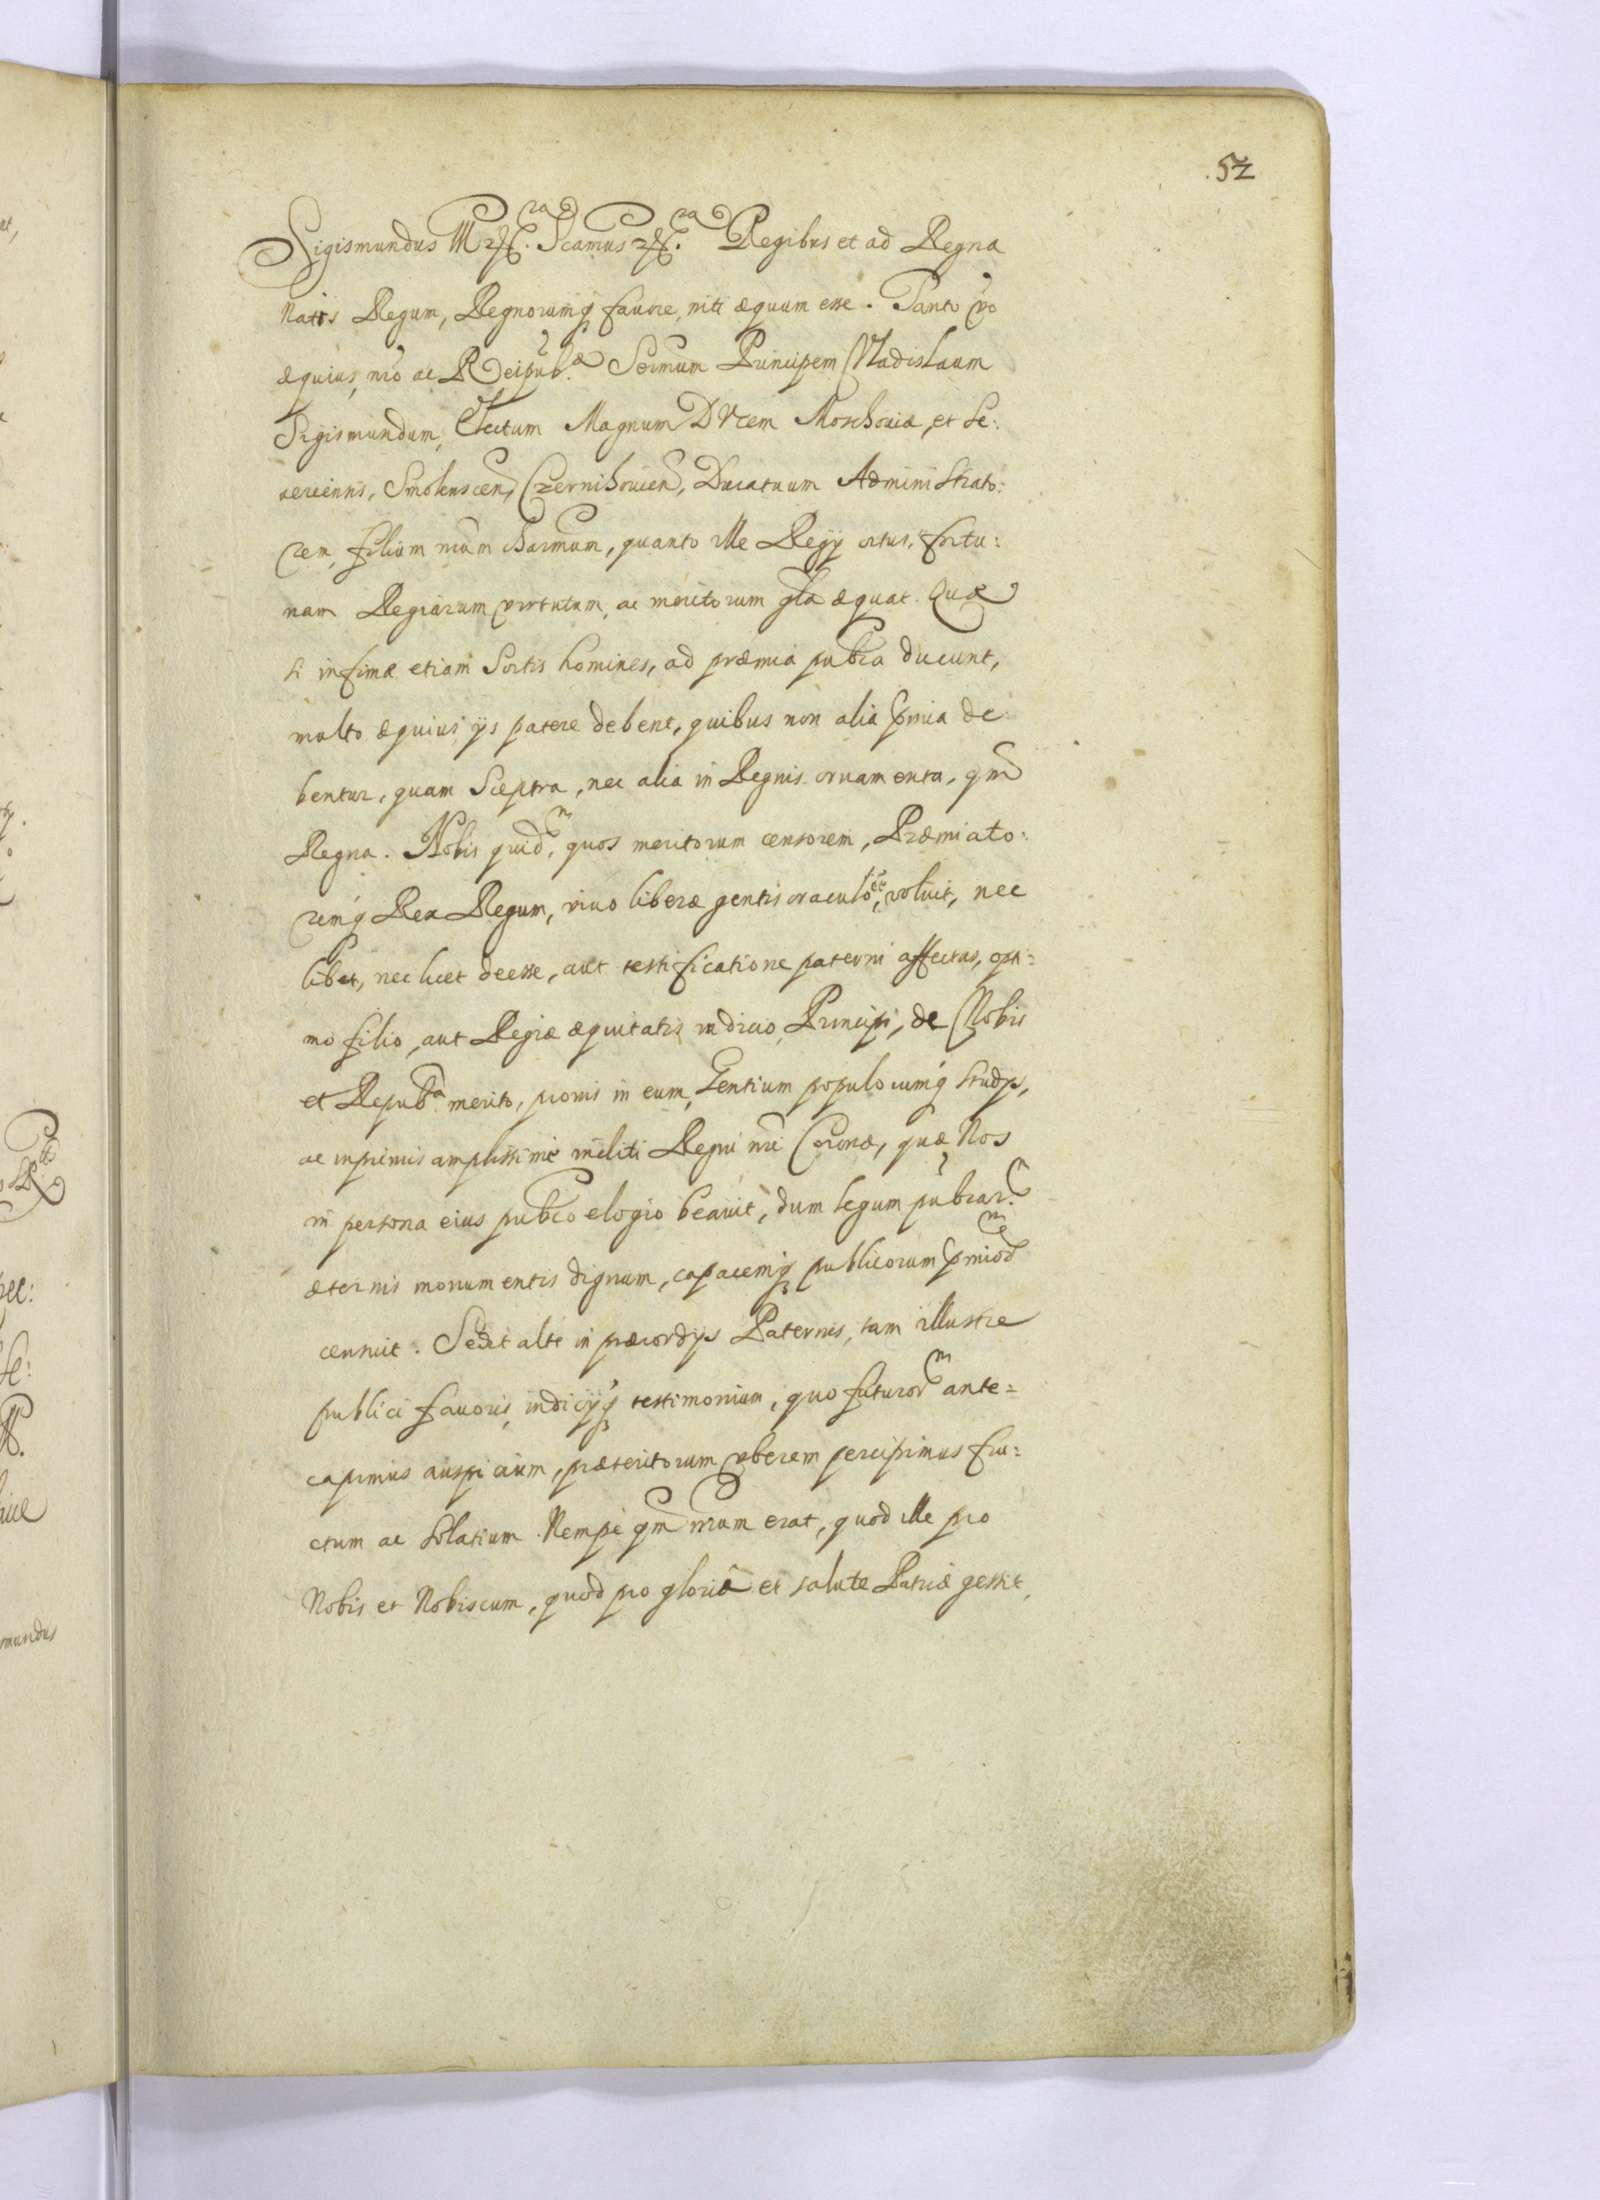 52
Sigismundus III etc. Scamus etc. Regibus et ad Regna
Natis Regum, Regnorumq favore, niti æquum esse. Tanto vo
æquius, nrõ ac Reipubæ Sermum Principem Vladislaum
Sigismundum, Electum Magnum DVcem Moschoviæ, et Se:
veriennis, Smolenscen, Czernihovien, Ducatuum Administrato:
rem, filium nrum Charmum, quanto ille Regÿ ortus, fortu:
nam Regiarum virtutum, ac meritorum gla æquat. Quæ
si infimæ etiam Sortis homines, ad præmia pubca ducunt,
multo æquius ijs patere debent, quibus non alia pmia de
bentur, quam Sceptra, nec alia in Regnis ornamenta, qm
Regna. Nobis quidm, quos meritorum censorem, Præmiato:
remq Rex Regum, vivo liberæ gentis oraculo, ee voluit, nec
libet, nec licet deesse, aut testificatione paterni affectus, opti:
mo filio, aut Regiæ æquitatis indicio, Principi, de Nobis
et Repuba merito, pronis in eum, Gentium populorumq studÿs,
ac inprimis amplissime incliti Regni nri Coronæ, quæ Nos
in persona eius pubco elogio beavit, dum legum pubcarm
æternis monumentis dignum, capacemq publicorum pmiorm
censuit. Sedet alte in præcordÿs Paternis, tam illustre
publici favoris, indicÿq testimonium, quo futurorm ante=
capimus auspicium, præteritorum vberem percipimus fru:
ctum ac solatium. Nempe qm nrum erat, quod ille pro
Nobis et Nobiscum, quod pro gloriâ et salute Patriæ gessit,